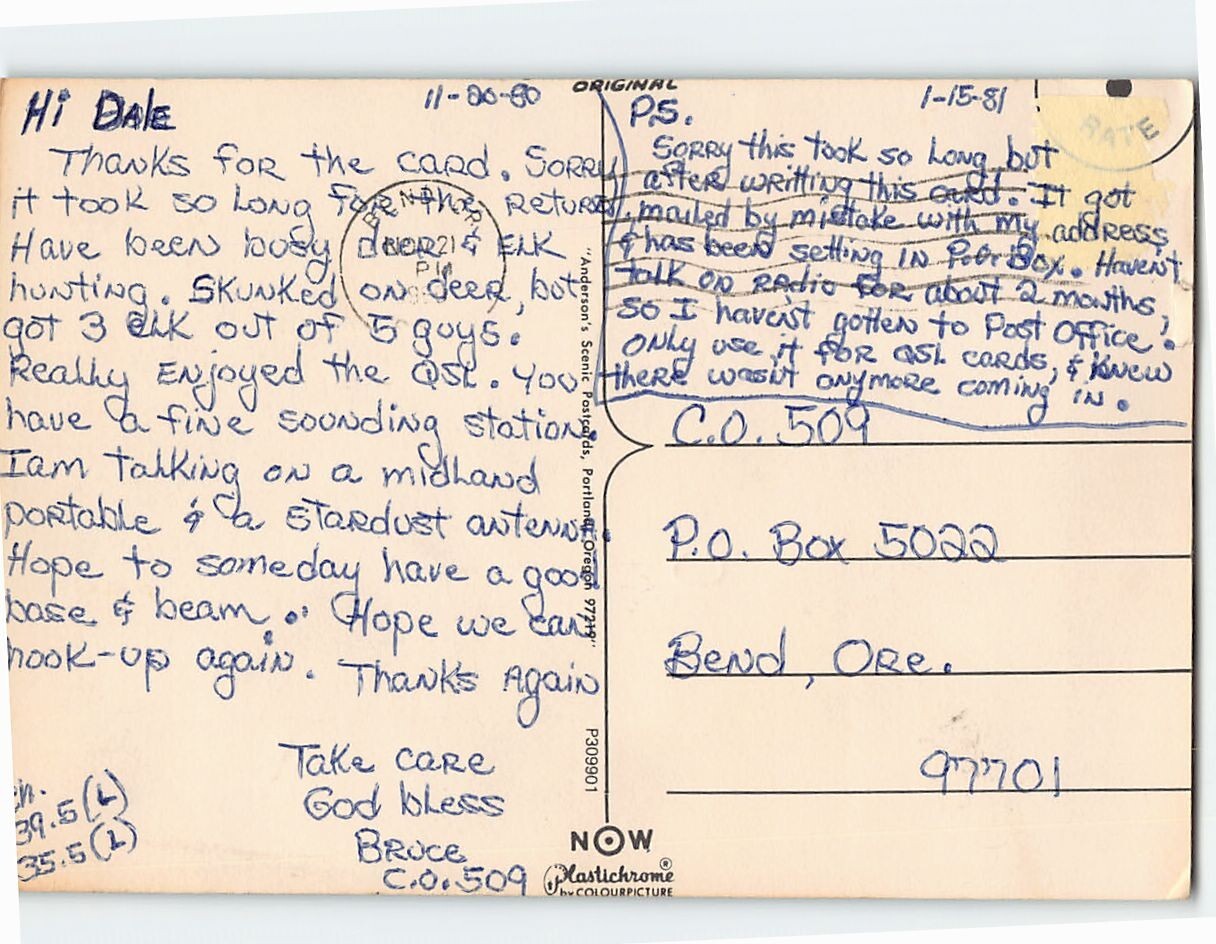 11-20-80
Hi Dale
Thanks for the card. Sorry
it took so long for the return.
Have been busy deer & elk
hunting. Skunked on deer, but
got 3 elk out of 5 guys.
Really enjoyed the QSL. You
have a fine sounding station.
I am talking on a midland
portable & a stardust antenna.
Hope to someday have a good
base & beam. Hope we can
hook-up again. Thanks Again
Take care
God bless
Bruce
C.O. 509
ch.
39.5 (L)
35.5 (L)
ORIGINAL
"Anderson's Scenic Postcards, Portland, Oregon 97219"
P309901
NOW
Plastichrome®
by COLOURPICTURE
1-15-81
P.S.
Sorry this took so long, but
after writting this card. It got
mailed by mistake with my address,
& has been setting in P.O. Box. Haven't
talk on radio for about 2 months,
so I haven't gotten to Post Office.
only use it for QSL cards, & knew
there wasn't anymore coming in.
RATE
BEND, OR
21
PM
C.O. 509
P.O. Box 5022
Bend, Ore.
97701